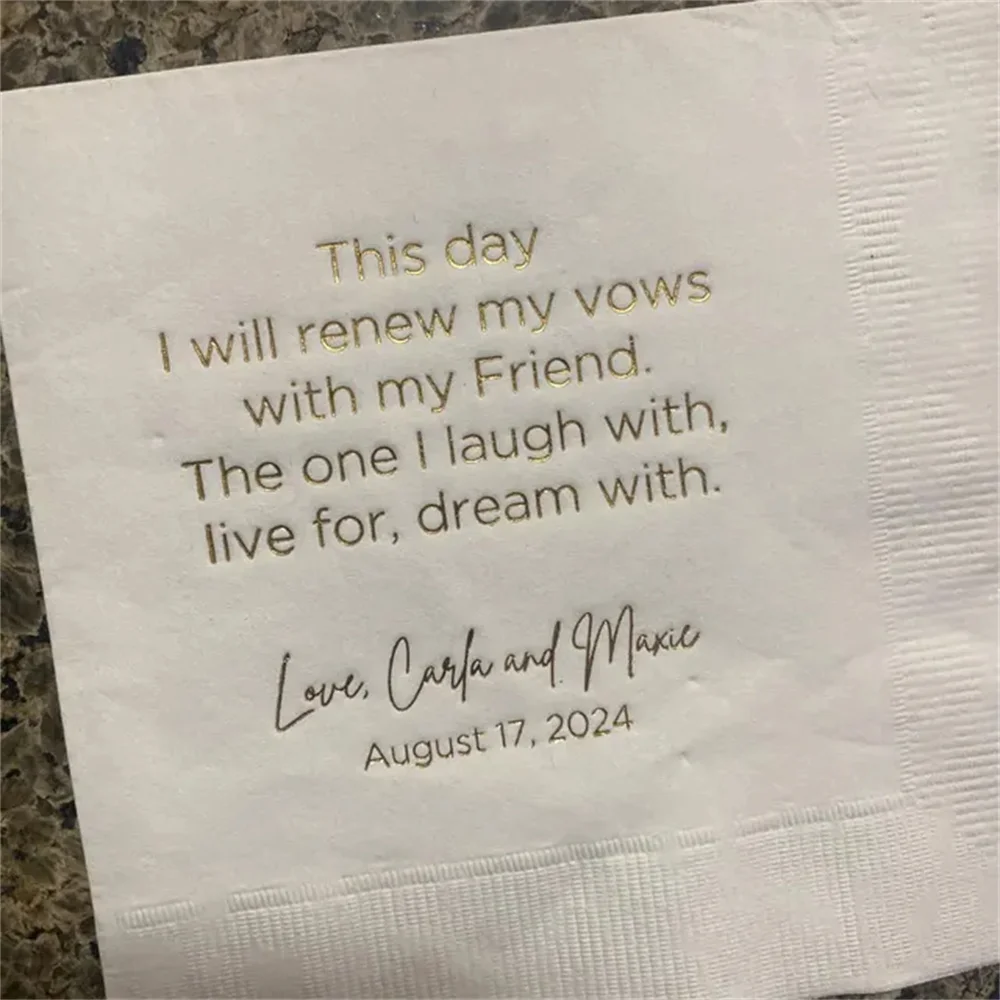 This day
I will renew my vows
with my Friend.
The one I laugh with,
live for, dream with.
Love, Carla and Maxie
August 17, 2024